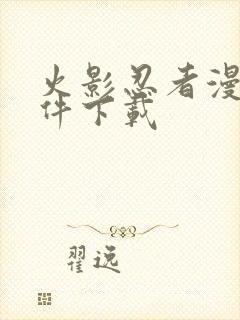 火影忍者漫
件下载
翟逸